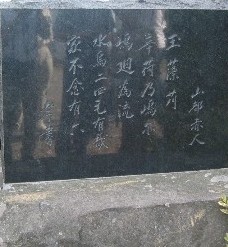 山部赤人
玉藻苅
辛荷乃嶋尓
嶋廻為流
水烏二四毛有哉
家不念有六